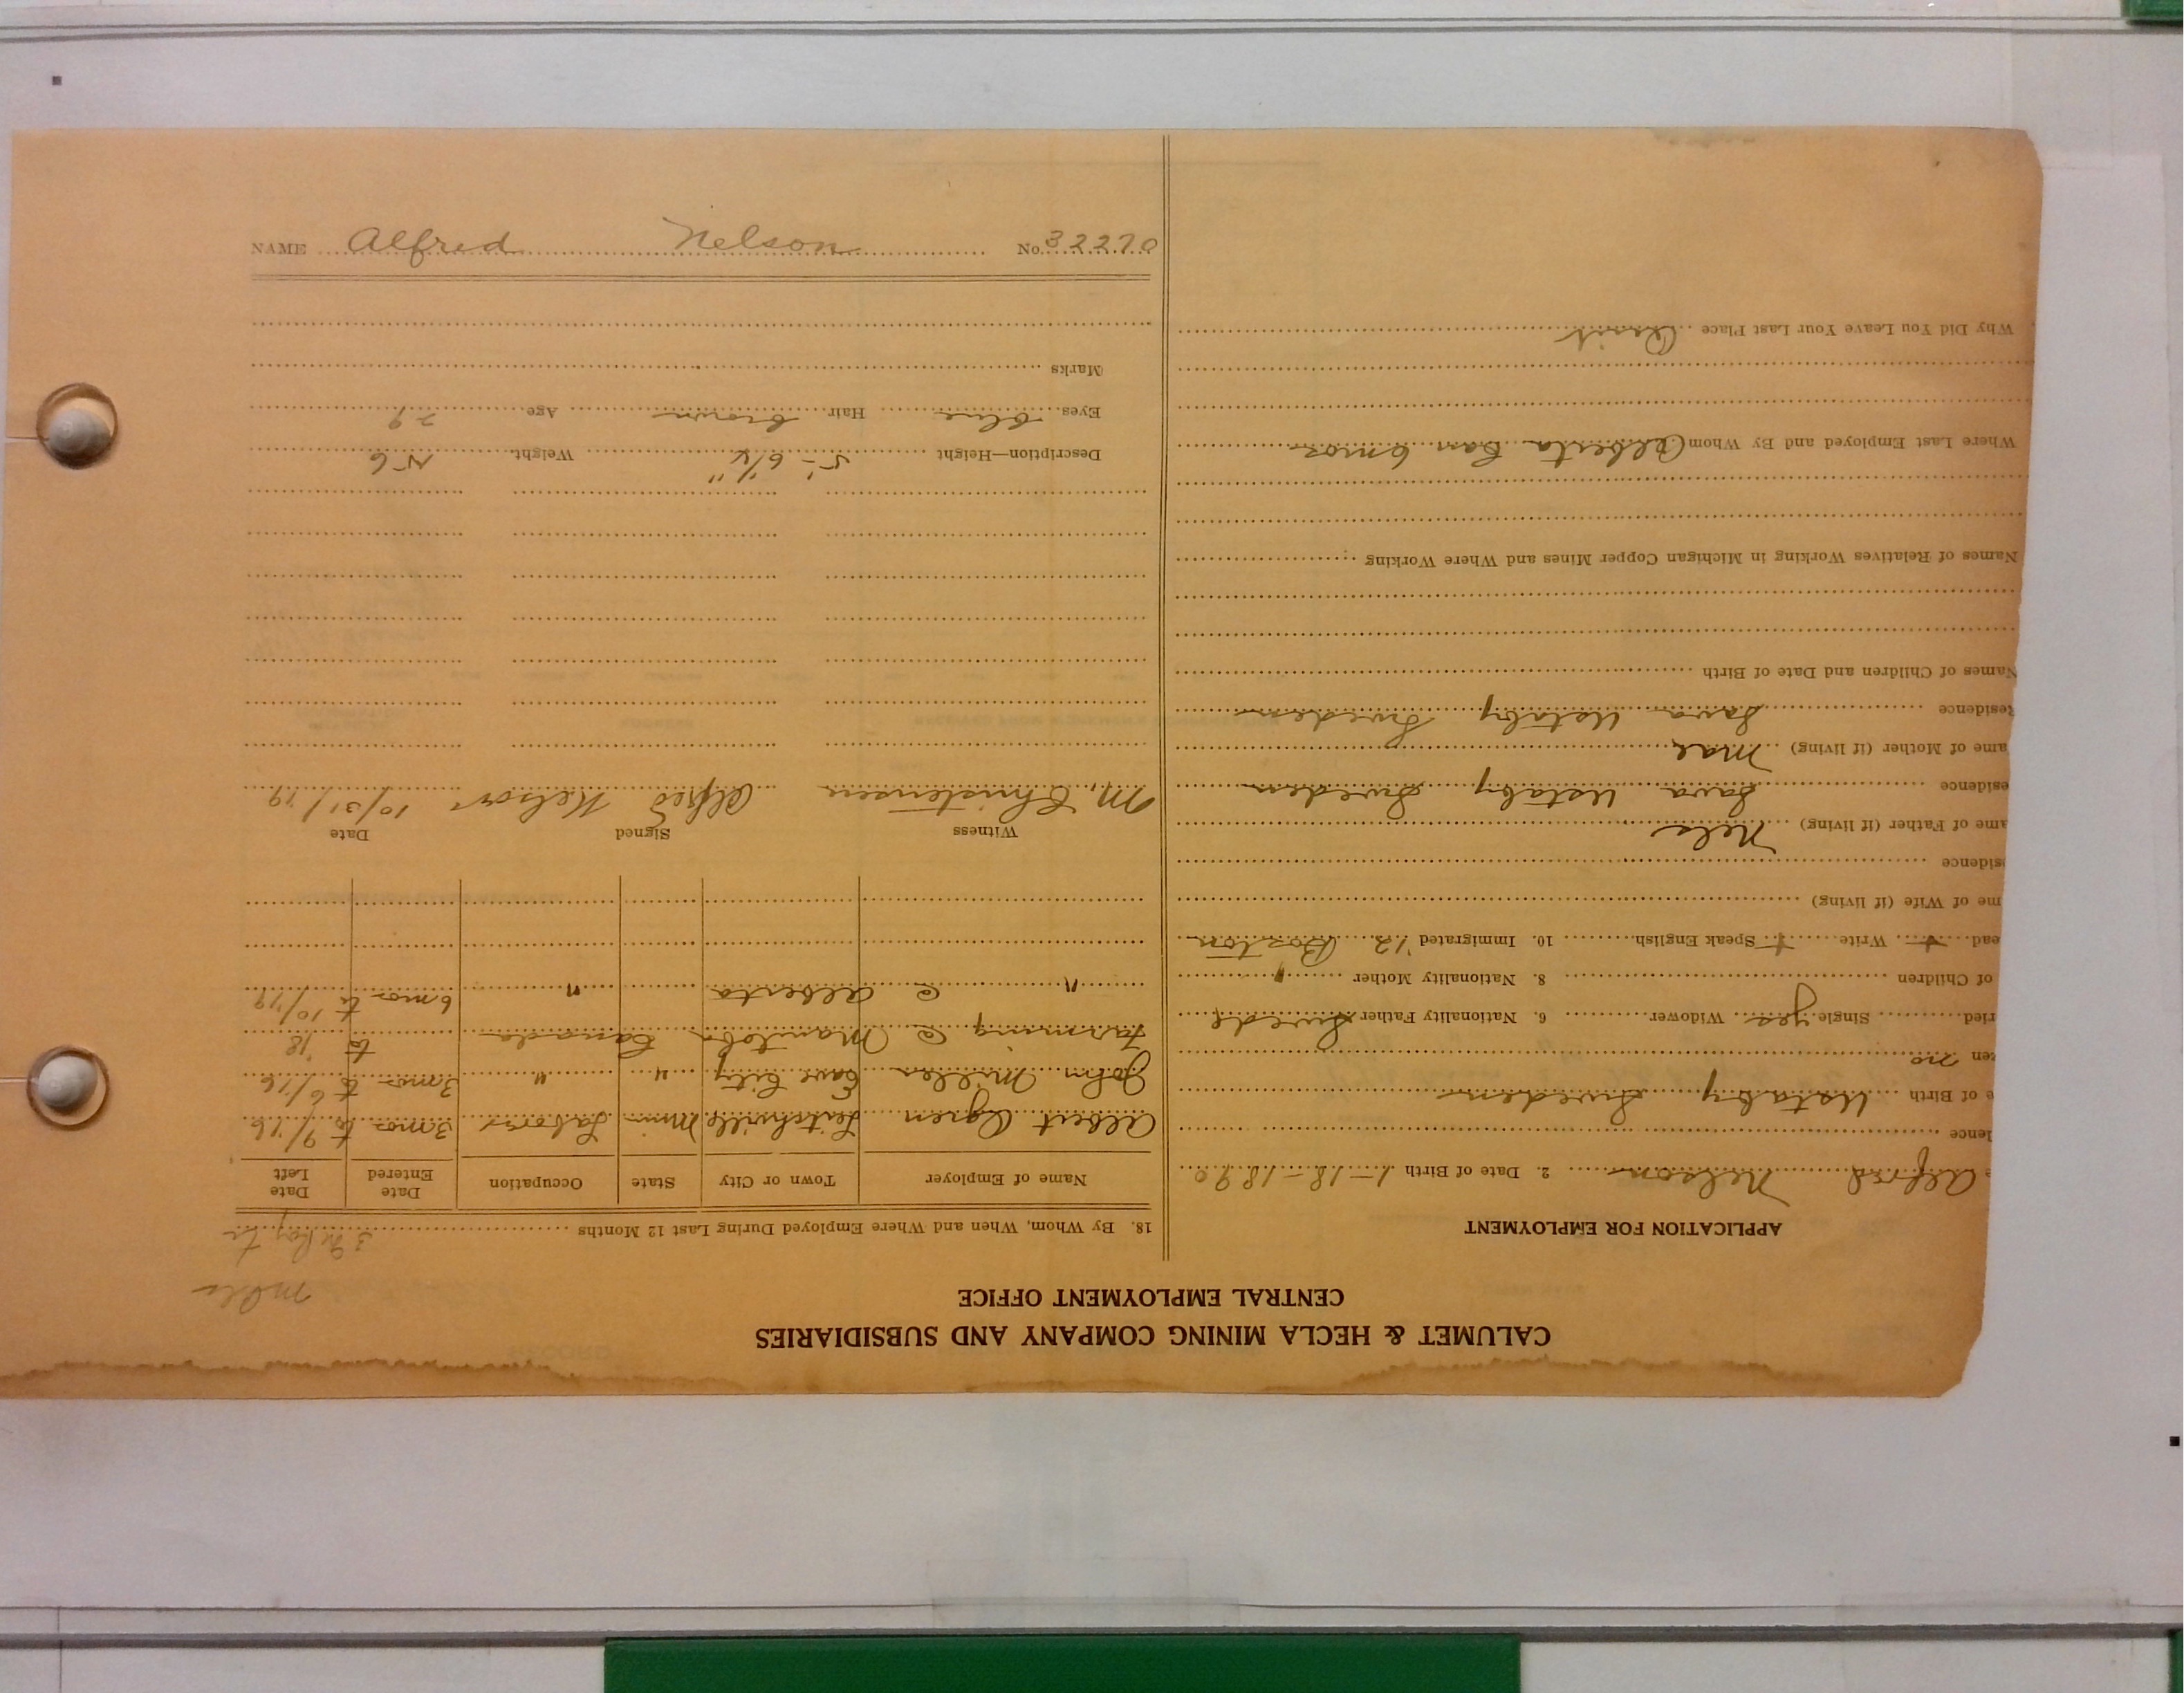 CALUMET & HECLA MINING COMPANY AND SUBSIDIARIES
CENTRAL EMPLOYMENT OFFICE
APPLICATION FOR EMPLOYMENT
e Alfred Nelson 2. Date of Birth 1-18-1890
lence
e of Birth Ustaby Sweden
zen no
ried Single yes Widower 6. Nationality Father Swede
of Children 8. Nationality Mother "
ead + Write + Speak English 10. Immigrated '12 Boston
me of Wife (if living)
sidence
ame of Father (if living) Nels
esidence Sava Ustaby Sweden
ame of Mother (if living)
Residence Sava Ustaby Sweden
Names of Children and Date of Birth
Names of Relatives Working in Michigan Copper Mines and Where Working
Where Last Employed and By Whom Alberta Can 6 mos
Why Did You Leave Your Last Place Quit
18. By Whom, When and Where Employed During Last 12 Months
Name of Employer Town or City State Occupation Date Entered Date Left
Albert Agren Minn Laborer 3 mos to 9/16
John Miller Cave City " " 3 mos to 6/16
Farming @ Manitoba Canada to 18
" @ Alberta " 6 mos to 10/19
Witness Signed Date
M. Christensen Alfred Nelson 10/31/19
Description—Height 5'-6 1/4" Weight
Eyes blue Hair brown Age 29
Marks
NAME Alfred Nelson No. 32270